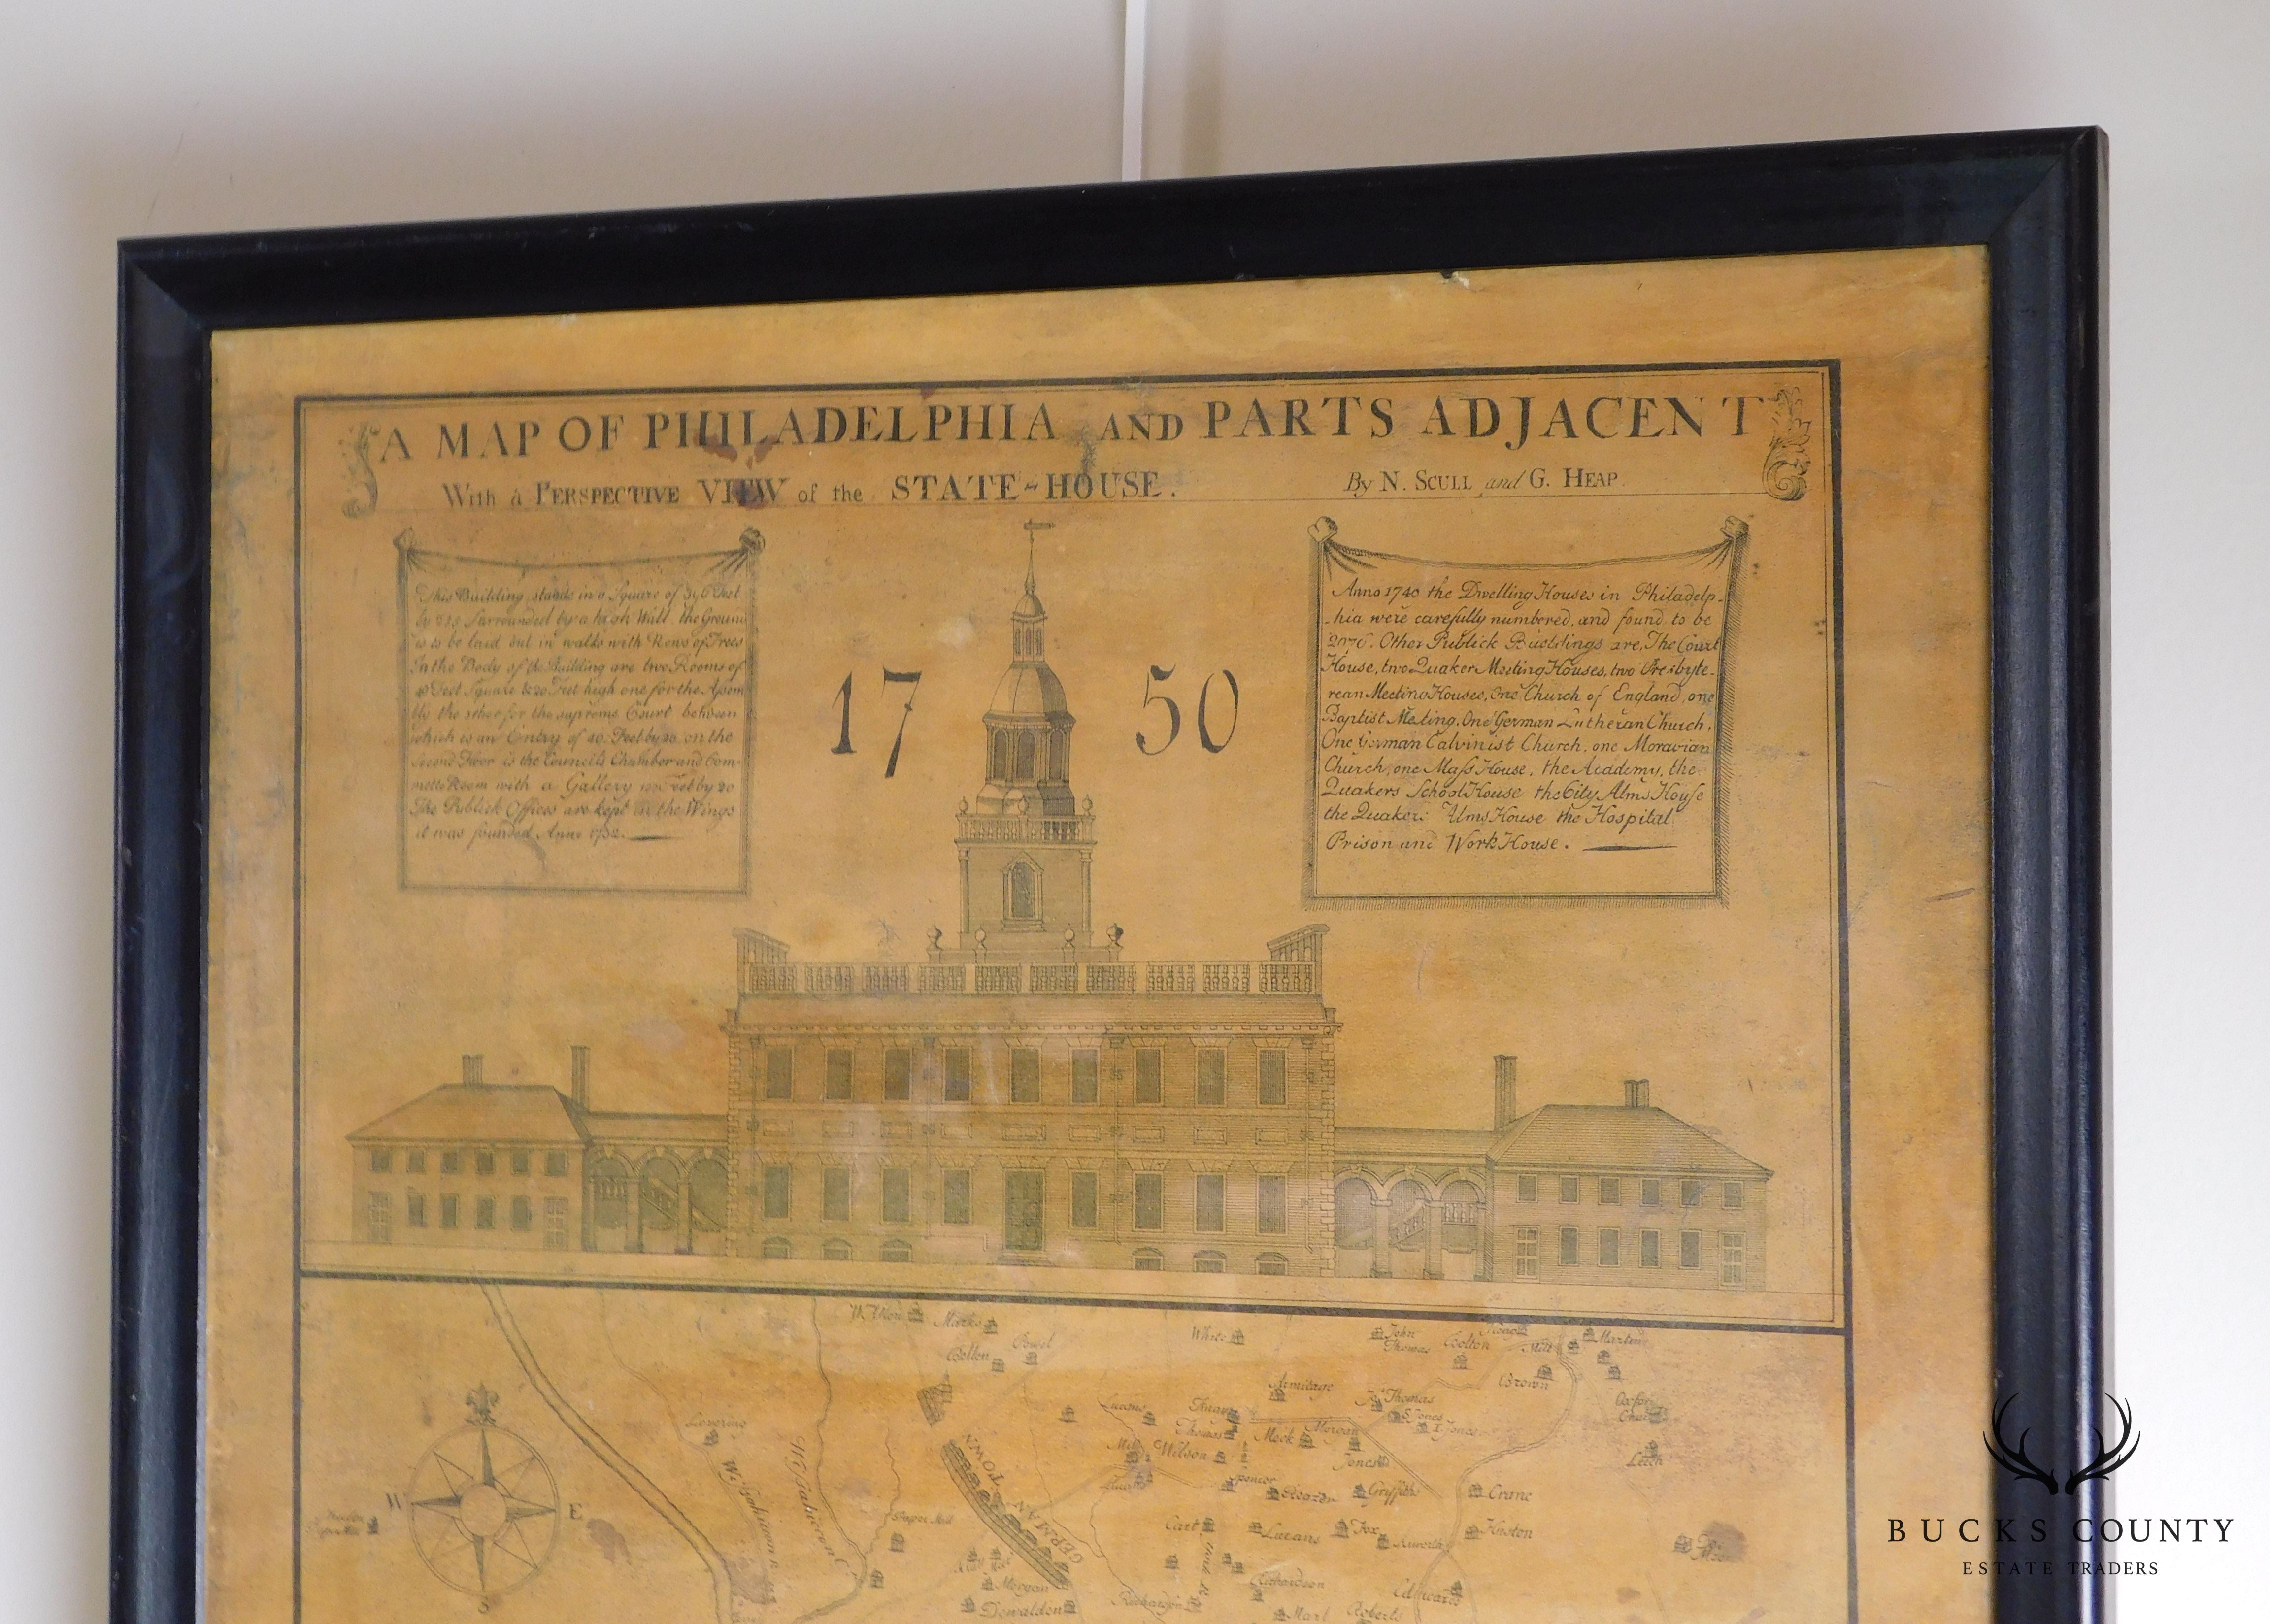 A MAP OF PHILADELPHIA AND PARTS ADJACENT
With a PERSPECTIVE VIEW of the STATE-HOUSE.
By N. SCULL and G. HEAP
This Building stands in a Square of 396 Feet
by 255 Surrounded by a high Wall the Ground
is to be laid out in walks with Rows of Trees
In the Body of the Building are two Rooms of
40 Feet Square & 20 Feet high one for the Assem
bly the other for the supreme Court between
which is an Entry of 40 Feet by 20 on the
second Floor is the Councils Chamber and Com-
mette Room with a Gallery 100 Feet by 20
The Publick Offices are kept in the Wings
it was founded Anno 1732.
17 50
Anno 1749 the Dwelling Houses in Philadelp-
-hia were carefully numbered, and found to be
2076. Other Publick Buildings are, The Court
House, two Quaker Meeting Houses, two Presbyte-
rean Meeting Houses, One Church of England, one
Baptist Meeting, One German Lutheran Church,
One German Calvinist Church, one Moravian
Church, one Mass House, the Academy, the
Quakers School House the City Alms House
the Quakers Alms House the Hospital
Prison and Work House.
Marks
Bolton
Powel
White
John
Thomas
Colton
Mill
Martin
Brown
Armitage
Thomas
S. Jones
I. Jones
Levering
Lucans
Thomas
Meck
Morgan
Mill
Wilson
Jones
Leech
Spencer
Griffiths
Crane
W
E
S
Wissahiccon C
GERMAN TOWN
Paper Mill
Cart
Lucans
Fox
Heston
Morgan
Dewalden
Richardson
Richardson
Edwards
Marl
Roberts
BUCKS COUNTY
ESTATE TRADERS